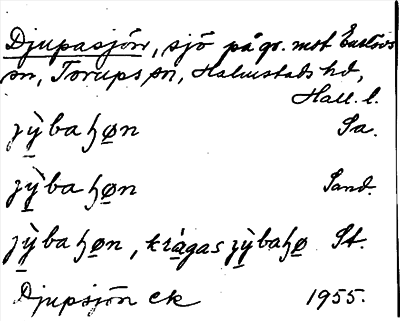 Djupasjön, sjö på gr. mot Enslövs
sn, Torups sn, Halmstads hd,
Hall. l.
jỳbaɧøn Sa.
jỳbaɧøn Sand.
jỳbaɧøn, krágas jỳbaɧø St.
Djupsjön ek 1955.